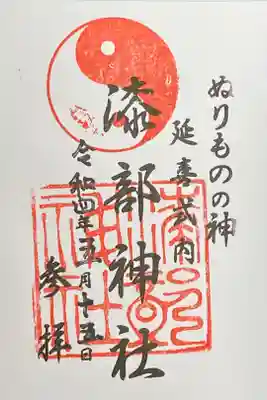 ぬりものの神
延喜式内
漆部神社
令和四年五月十五日
参拝